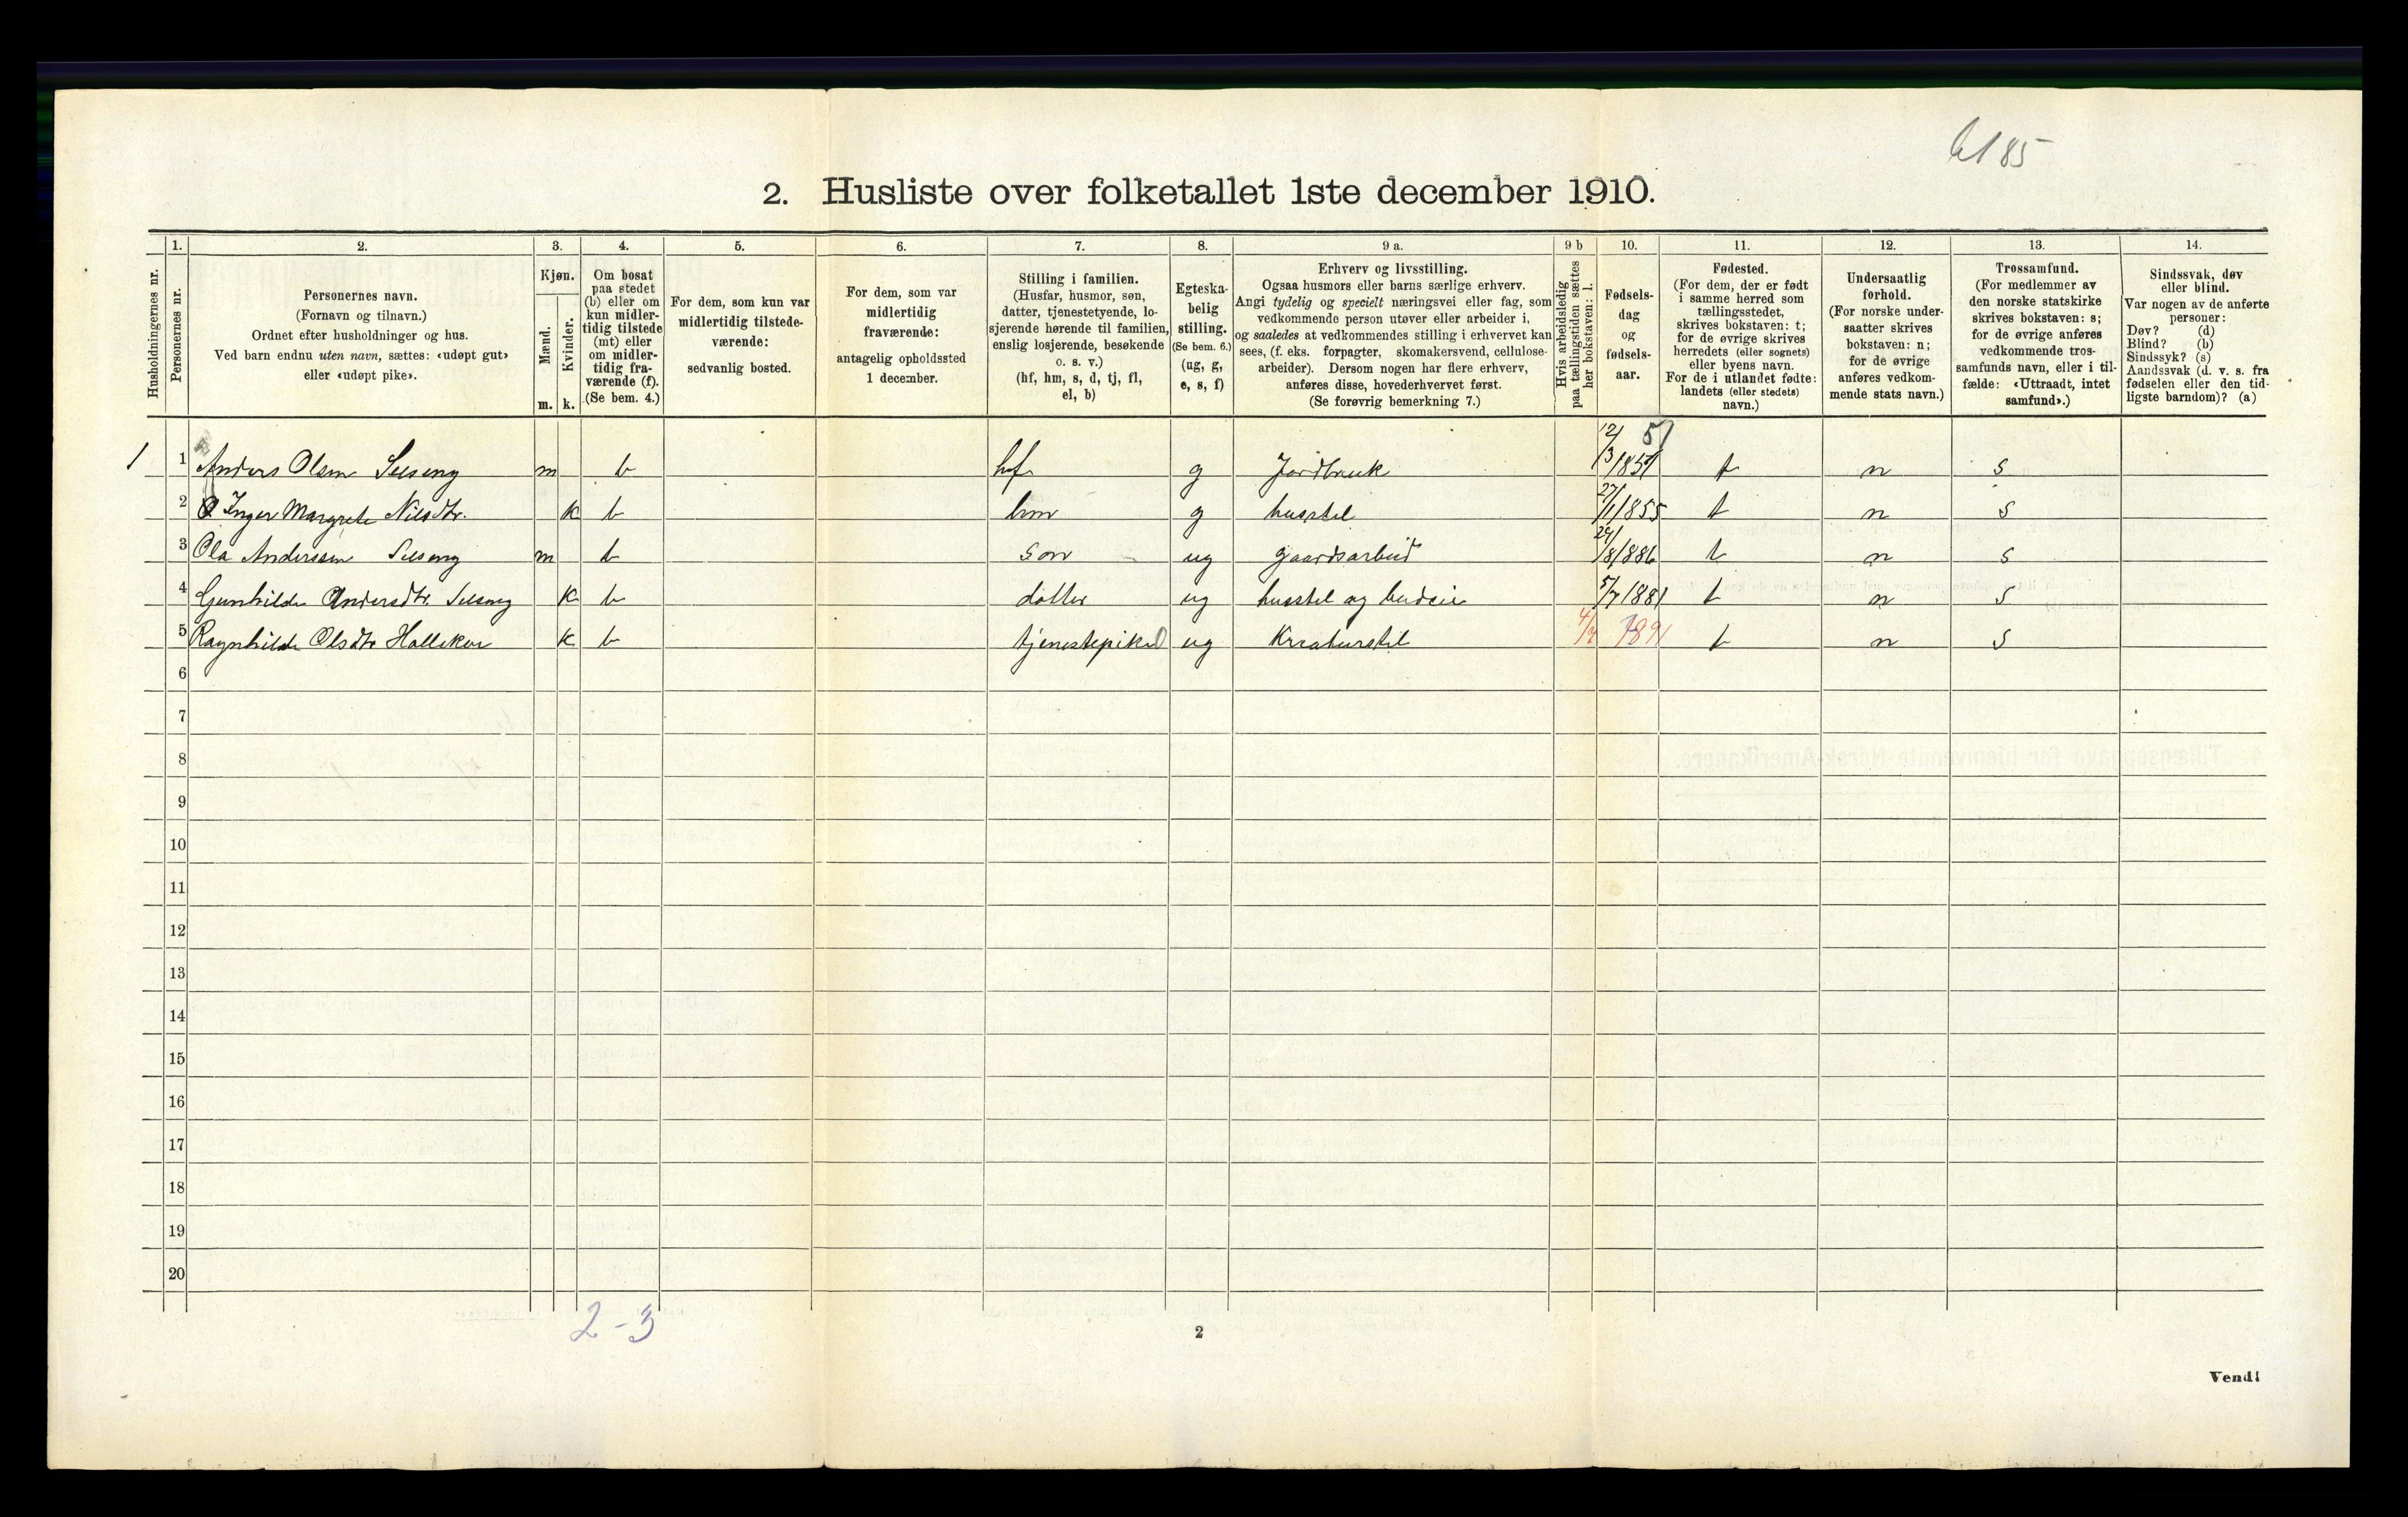 6185
2. Husliste over folketallet 1ste december 1910.
Husholdningernes nr.
1.
Personernes nr.
2.
Personernes navn.
(Fornavn og tilnavn.)
Ordnet efter husholdninger og hus.
Ved barn endnu uten navn, sættes: «udøpt gut»
eller «udøpt pike».
3.
Kjøn.
Mænd.
Kvinder.
m. k.
4.
Om bosat
paa stedet
(b) eller om
kun midler-
tidig tilstede
(mt) eller
om midler-
tidig fra-
værende (f).
(Se bem. 4.)
5.
For dem, som kun var
midlertidig tilstede-
værende:
sedvanlig bosted.
6.
For dem, som var
midlertidig
fraværende:
antagelig opholdssted
1 december.
7.
Stilling i familien.
(Husfar, husmor, søn,
datter, tjenestetyende, lo-
sjerende hørende til familien,
enslig losjerende, besøkende
o. s. v.)
(hf, hm, s, d, tj, fl,
el, b)
8.
Egteska-
belig
stilling.
(Se bem. 6.)
(ug, g,
e, s, f)
9 a.
Erhverv og livsstilling.
Ogsaa husmors eller barns særlige erhverv.
Angi tydelig og specielt næringsvei eller fag, som
vedkommende person utøver eller arbeider i,
og saaledes at vedkommendes stilling i erhvervet kan
sees, (f. eks. forpagter, skomakersvend, cellulose-
arbeider). Dersom nogen har flere erhverv,
anføres disse, hovederhvervet først.
(Se forøvrig bemerkning 7.)
9 b
Hvis arbeidsledig
paa tællingstiden sættes
her bokstaven: l.
10.
Fødsels-
dag
og
fødsels-
aar.
11.
Fødested.
(For dem, der er født
i samme herred som
tællingsstedet,
skrives bokstaven: t;
for de øvrige skrives
herredets (eller sognets)
eller byens navn.
For de i utlandet fødte:
landets (eller stedets)
navn.)
12.
Undersaatlig
forhold.
(For norske under-
saatter skrives
bokstaven: n;
for de øvrige
anføres vedkom-
mende stats navn.)
13.
Trossamfund.
(For medlemmer av
den norske statskirke
skrives bokstaven: s;
for de øvrige anføres
vedkommende tros-
samfunds navn, eller i til-
fælde: «Uttraadt, intet
samfund».)
14.
Sindssvak, døv
eller blind.
Var nogen av de anførte
personer:
Døv? (d)
Blind? (b)
Sindssyk? (s)
Aandssvak (d. v. s. fra
fødselen eller den tid-
ligste barndom)? (a)
1 1 Anders Olsen m b hf g Jordbruk 12/3 1851 51 t n s
2 Inger Margrete Nilsdtr. k b hm g husstel 27/1 1855 t n s
3 Ola Anderssen m b son ug gaardsarbeid 24/8 1886 t n s
4 Gunhilde Andersdtr. k b dotter ug husstel og budeie 5/7 1881 t n s
5 Ragnhilde Olsdtr k b tjenestepike ug Kreaturstel 4/7 1891 t n s
6
7
8
9
10
11
12
13
14
15
16
17
18
19
20
2-3
2
Vend!